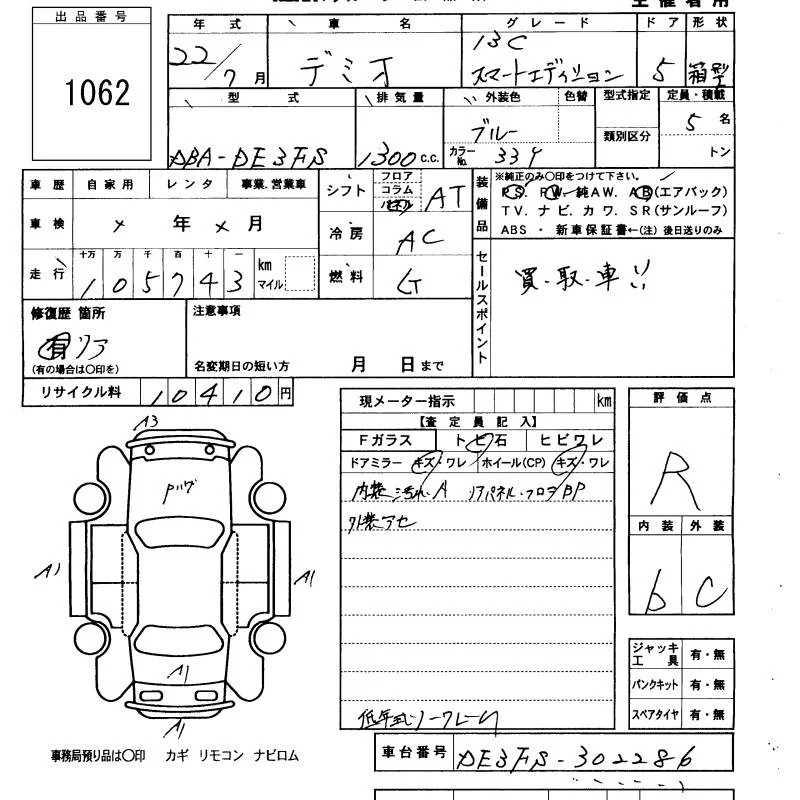 出品番号
1062
年式 車名 グレード ドア 形状
22/7月 デミオ 13C スマートエディション 5 箱型
型式 排気量 外装色 色替 型式指定 定員・積載
類別区分
DBA-DE3FS 1300c.c. ブルー カラーNo. 33Y 5名
トン
車歴 自家用 レンタ 事業.営業車
車検 × 年 × 月
走行 十万 万 千 百 十 一 km マイル
105743
シフト フロア コラム パネル AT
冷房 AC
燃料 G
装備品
※純正のみ○印をつけて下さい。
PS. PW. 純AW. AB(エアバック)
TV. ナビ. カワ. SR(サンルーフ)
ABS ・ 新車保証書←(注)後日送りのみ
セールスポイント
買・取・車!!
修復歴 箇所
有 リア
(有の場合は○印を)
注意事項
名変期日の短い方 月 日まで
リサイクル料 10410円
現メーター指示 km
【査定員記入】
Fガラス トビ石 ヒビワレ
ドアミラー キズ・ワレ ホイール(CP) キズ・ワレ
内装汚れ・A リアパネル・フロアBP
外装アセ
評価点
R
内装 外装
b C
A3
A1
A1
A1
A1
ジャッキ工具 有・無
パンクキット 有・無
スペアタイヤ 有・無
事務局預り品は○印 カギ リモコン ナビロム
車台番号 DE3FS-302286